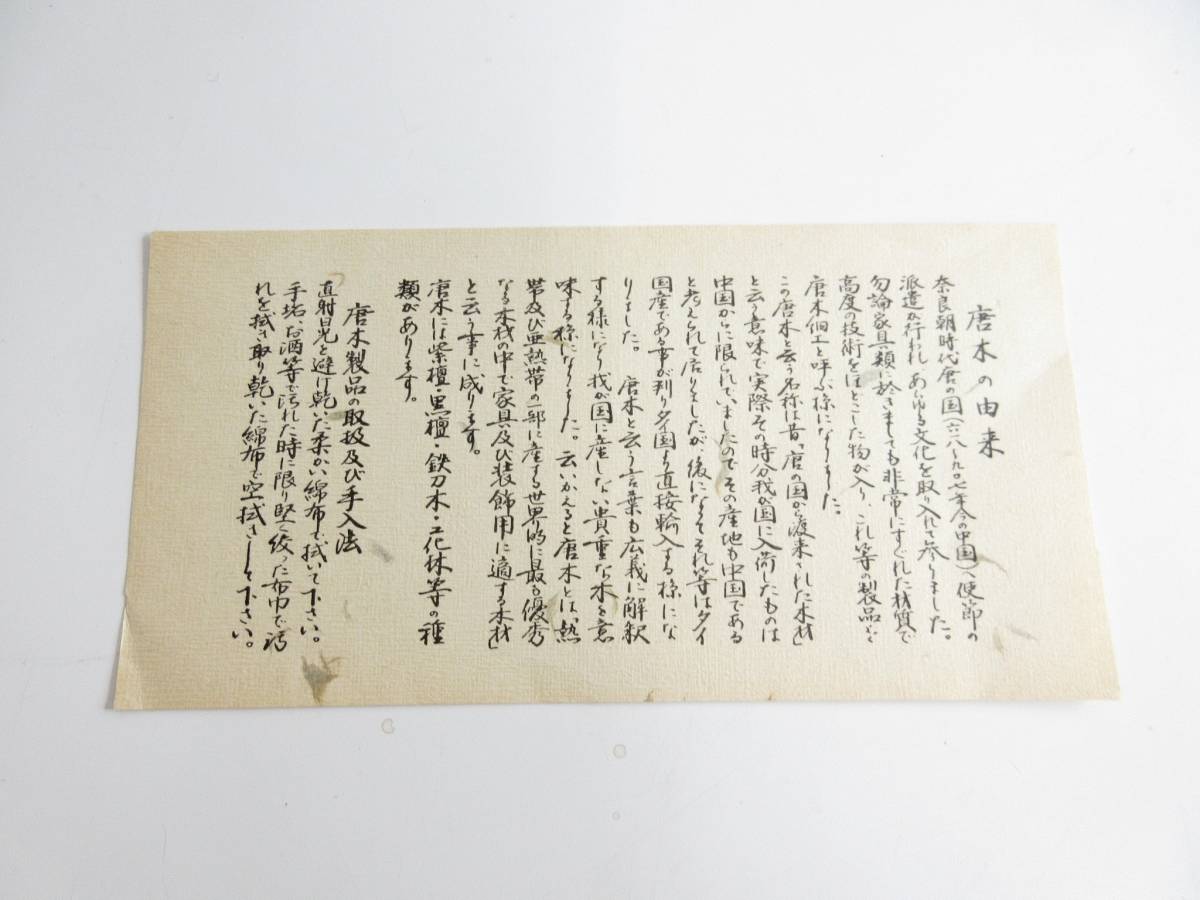 唐木の由来
奈良朝時代唐の国(六一八〜九〇七年今の中国)へ使節の
派遣が行われ、あらゆる文化を取り入れて参りました。
勿論家具類に於きましても非常にすぐれた材質で
高度の技術をほどこした物が入り、これ等の製品を
唐木細工と呼ぶ様になりました。
この唐木と云う名称は昔「唐の国から渡来された木材」
と云う意味で実際その時分我が国に入荷したものは
中国からに限られていましたのでその産地も中国である
と考えられて居りましたが、後になってそれ等はタイ
国産である事が判りタイ国より直接輸入する様にな
りました。 唐木と云う言葉も広義に解釈
する様になり我が国に産しない貴重な木を意
味する様になりました。云いかえると唐木とは、「熱
帯及び亜熱帯の一部に産する世界的に最も優秀
なる木材の中で家具及び装飾用に適する木材」
と云う事に成ります。
唐木には紫檀・黒檀・鉄刀木・花林等の種
類があります。
唐木製品の取扱及び手入法
直射日光を避け乾いた柔かい綿布で拭いて下さい。
手垢、お酒等で汚れた時に限り堅く絞った布巾で汚
れを拭き取り乾いた綿布で空拭きして下さい。